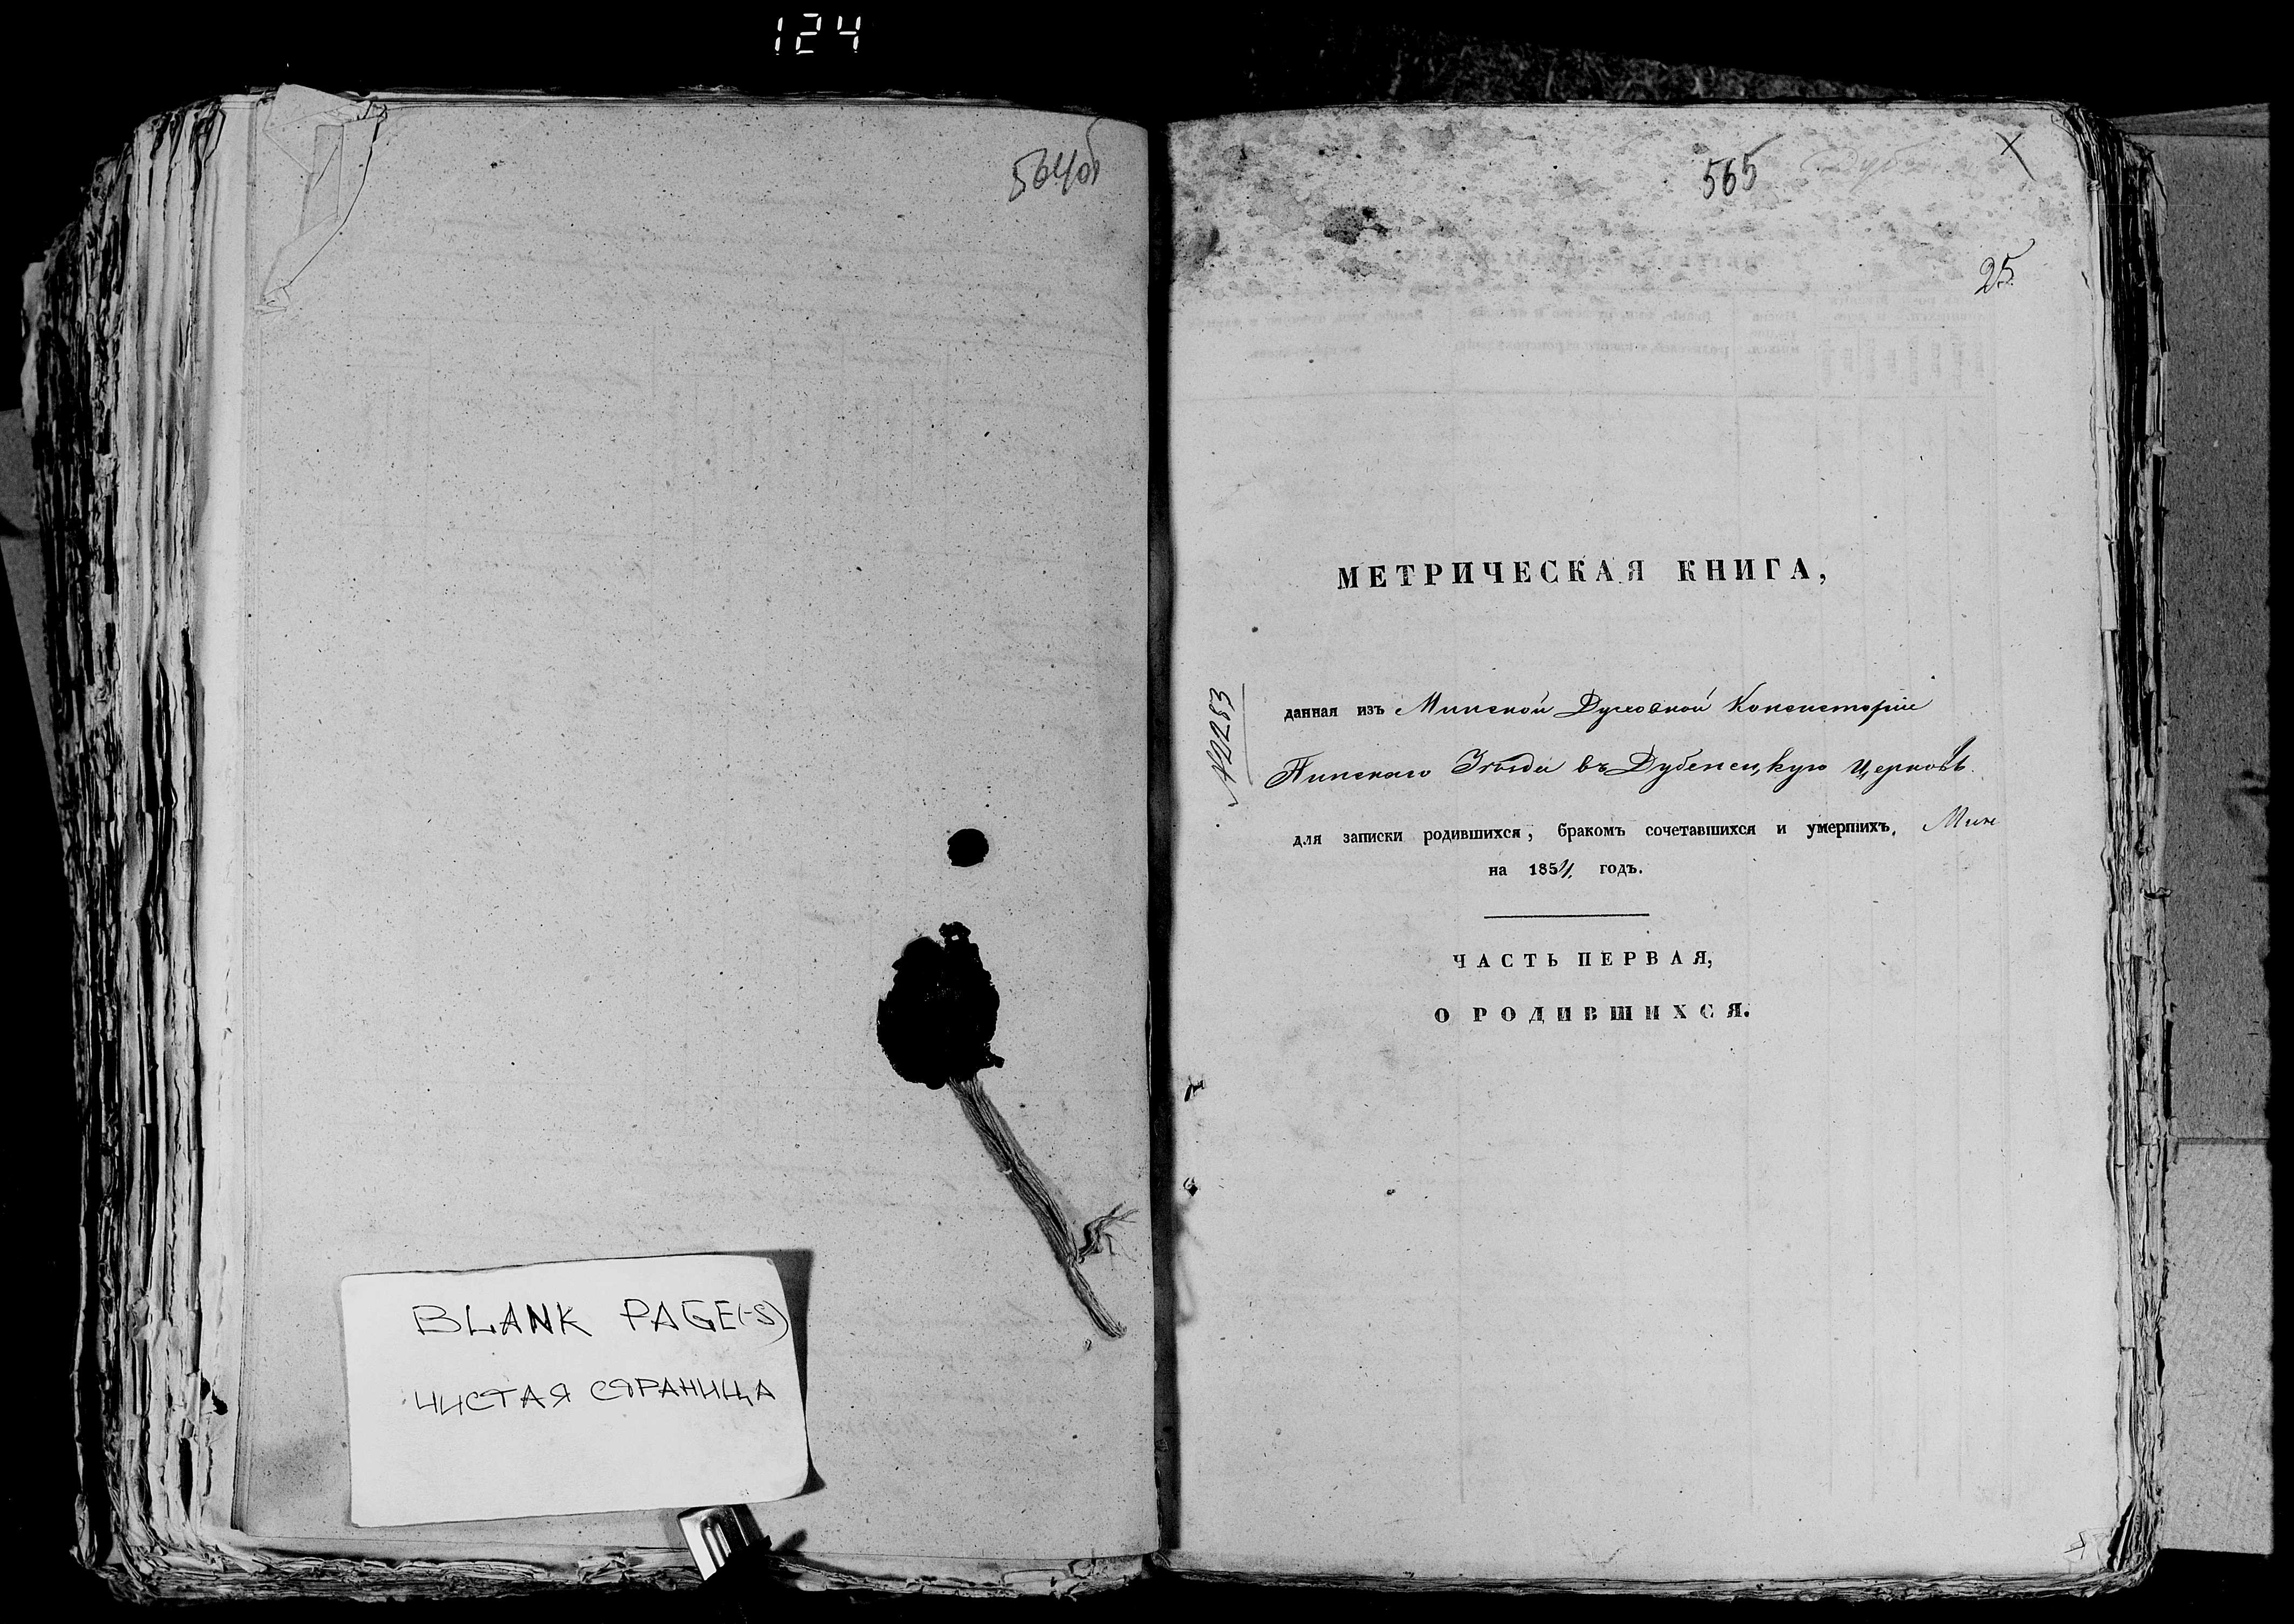 124
564об
BLANK PAGE(-S)
ЧИСТАЯ СТРАНИЦА
565
25
МЕТРИЧЕСКАЯ КНИГА,
№2283
данная изъ Минской Духовной Консисторіи
Пинскаго Уѣзда въ Дубенецкую Церковь.
для записки родившихся, бракомъ сочетавшихся и умершихъ, Мин
на 1854 годъ.
ЧАСТЬ ПЕРВАЯ,
О РОДИВШИХСЯ.